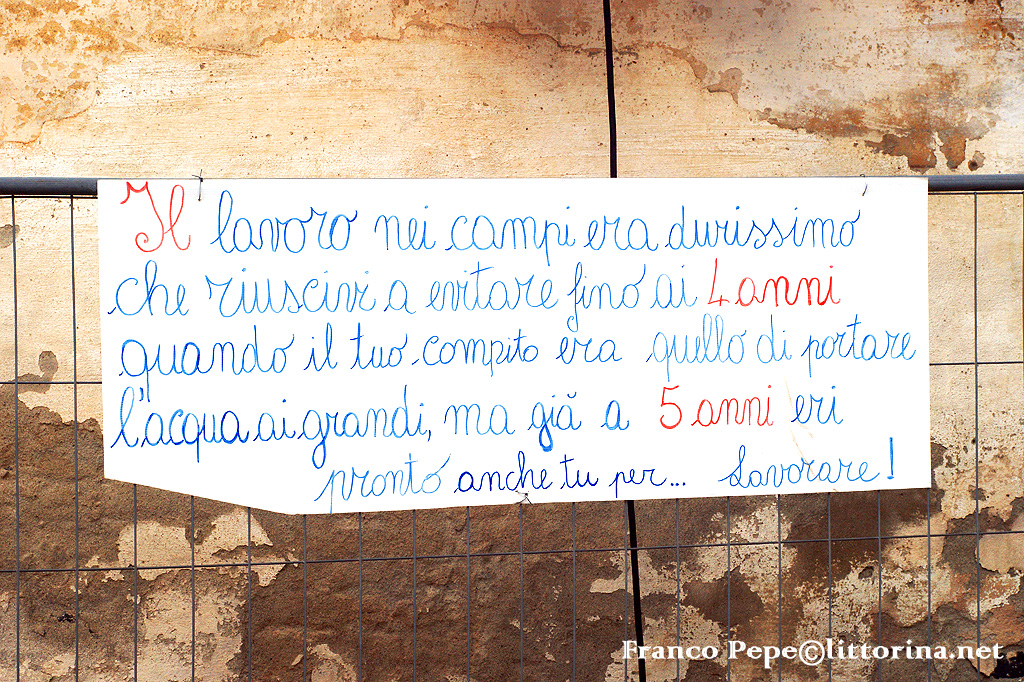 Il lavoro nei campi era durissimo
che riuscivi a evitare fino ai 4 anni
quando il tuo compito era quello di portare
l'acqua ai grandi, ma già a 5 anni eri
pronto anche tu per... lavorare!
Franco Pepe©littorina.net